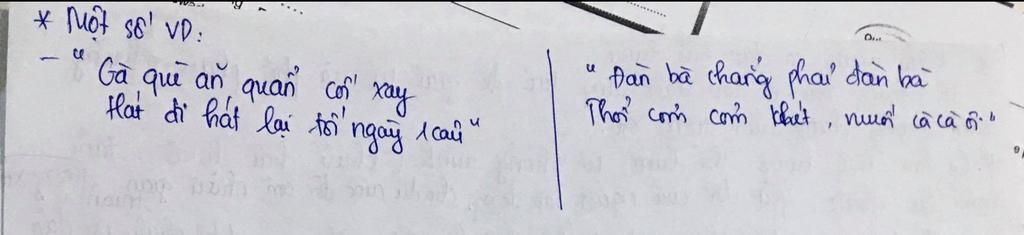 * Một số VD:
- "Gà què ăn quẩn cối xay
Hát đi hát lại tối ngày 1 câu"
"Đàn bà chẳng phải đàn bà
Thổi cơm cơm khét, muối cà cà ôi."